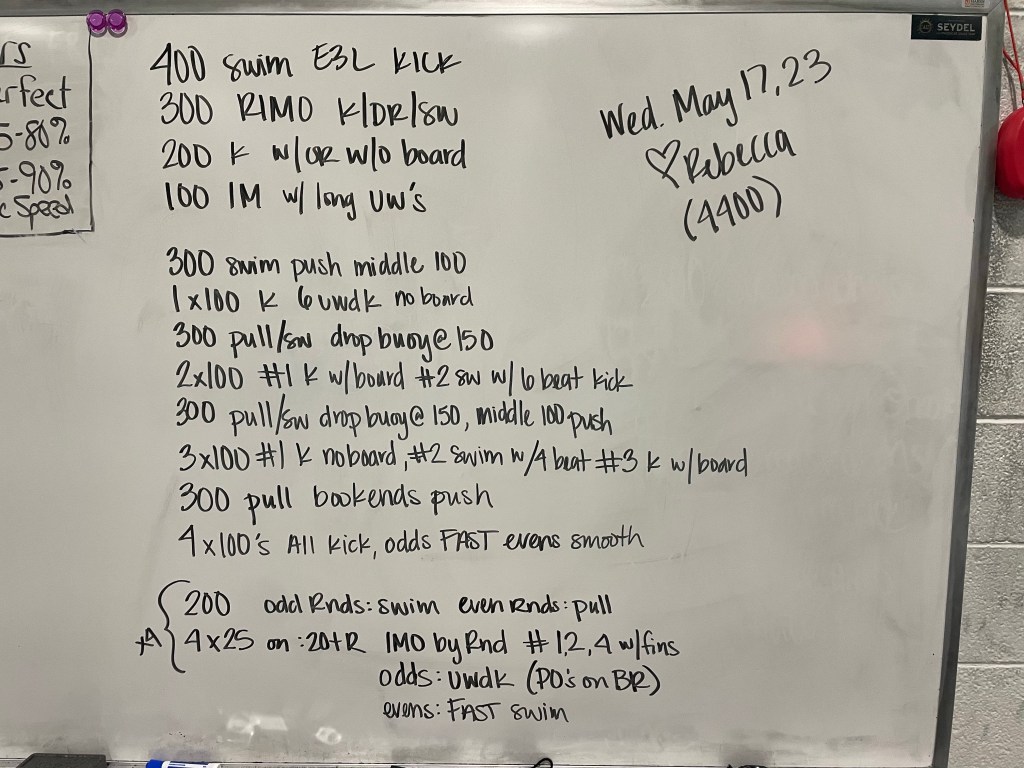 rs
rfect
5-80%
5-90%
c Speed
SEYDEL
400 swim E3L KICK
300 RIMO K/DR/SW
200 K w/OR w/o board
100 IM w/ long UW's
Wed. May 17, 23
♡ Rebecca
(4400)
300 swim push middle 100
1x100 K 6 uwdk no board
300 pull/sw drop buoy@ 150
2x100 #1 K w/board #2 SW w/ 6 beat kick
300 pull/sw drop buoy@ 150, middle 100 push
3x100 #1 K no board, #2 swim w/4 beat #3 K w/board
300 pull bookends push
4x100's All kick, odds FAST evens smooth
x4 { 200 odd Rnds: swim even Rnds: pull
4x25 on :20+R IMO by Rnd # 1,2,4 w/fins
odds: uwdk (PO's on BR)
evens: FAST swim